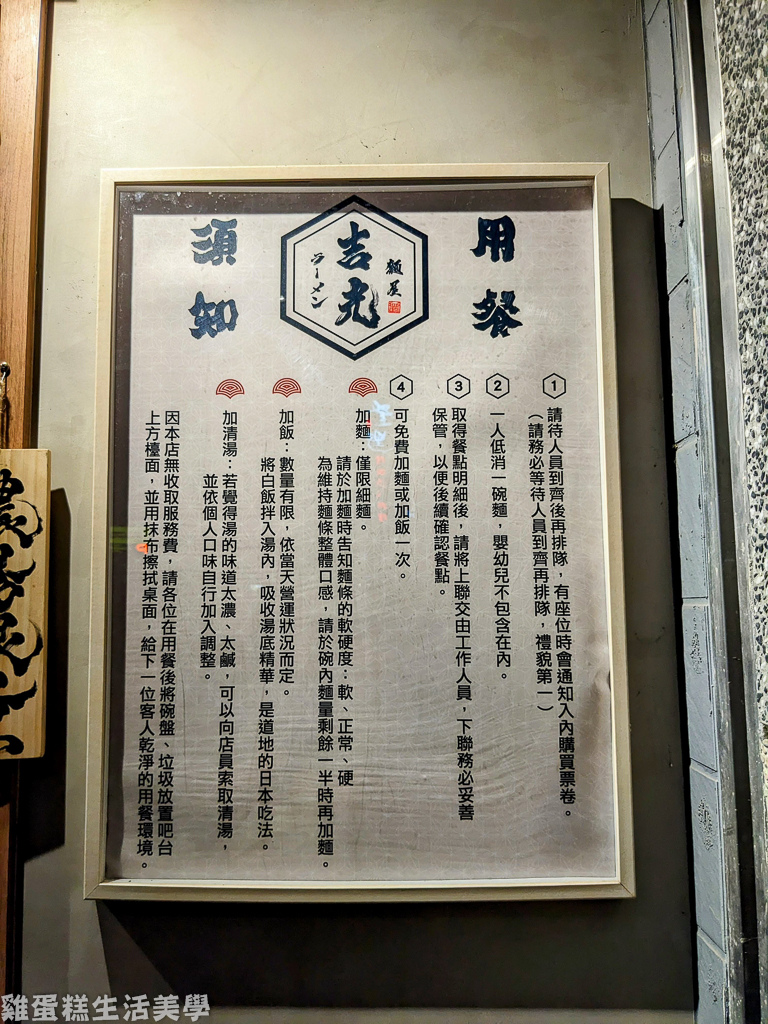 用餐
須知
麵屋
吉光
ラーメン
1
請待人員到齊後再排隊，有座位時會通知入內購買票卷。
（請務必等待人員到齊再排隊，禮貌第一）
2
一人低消一碗麵，嬰幼兒不包含在內。
3
取得餐點明細後，請將上聯交由工作人員，下聯務必妥善
保管，以便後續確認餐點。
4
可免費加麵或加飯一次。
加麵：僅限細麵。
請於加麵時告知麵條的軟硬度：軟、正常、硬
為維持麵條整體口感，請於碗內麵量剩餘一半時再加麵。
加飯：數量有限，依當天營運狀況而定。
將白飯拌入湯內，吸收湯底精華，是道地的日本吃法。
加清湯：若覺得湯的味道太濃、太鹹，可以向店員索取清湯，
並依個人口味自行加入調整。
因本店無收取服務費，請各位在用餐後將碗盤、垃圾放置吧台
上方檯面，並用抹布擦拭桌面，給下一位客人乾淨的用餐環境。
雞蛋糕生活美學